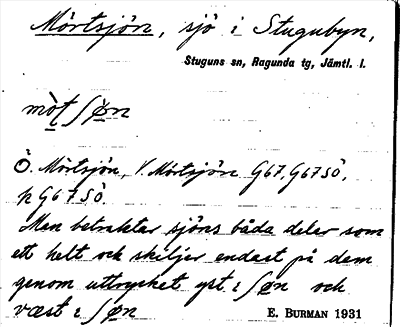 Mörtsjön, sjö i Stugubyn,
Stuguns sn, Ragunda tg, Jämtl. l.
mòt ʃøn
Ö. Mörtsjön, V. Mörtsjön G67, G67SÖ,
p G67SÖ.
Man betraktar sjöns båda delar som
ett helt och skiljer endast på dem
genom uttrycket yst i ʃøn och
væst i ʃøn
E. BURMAN 1931